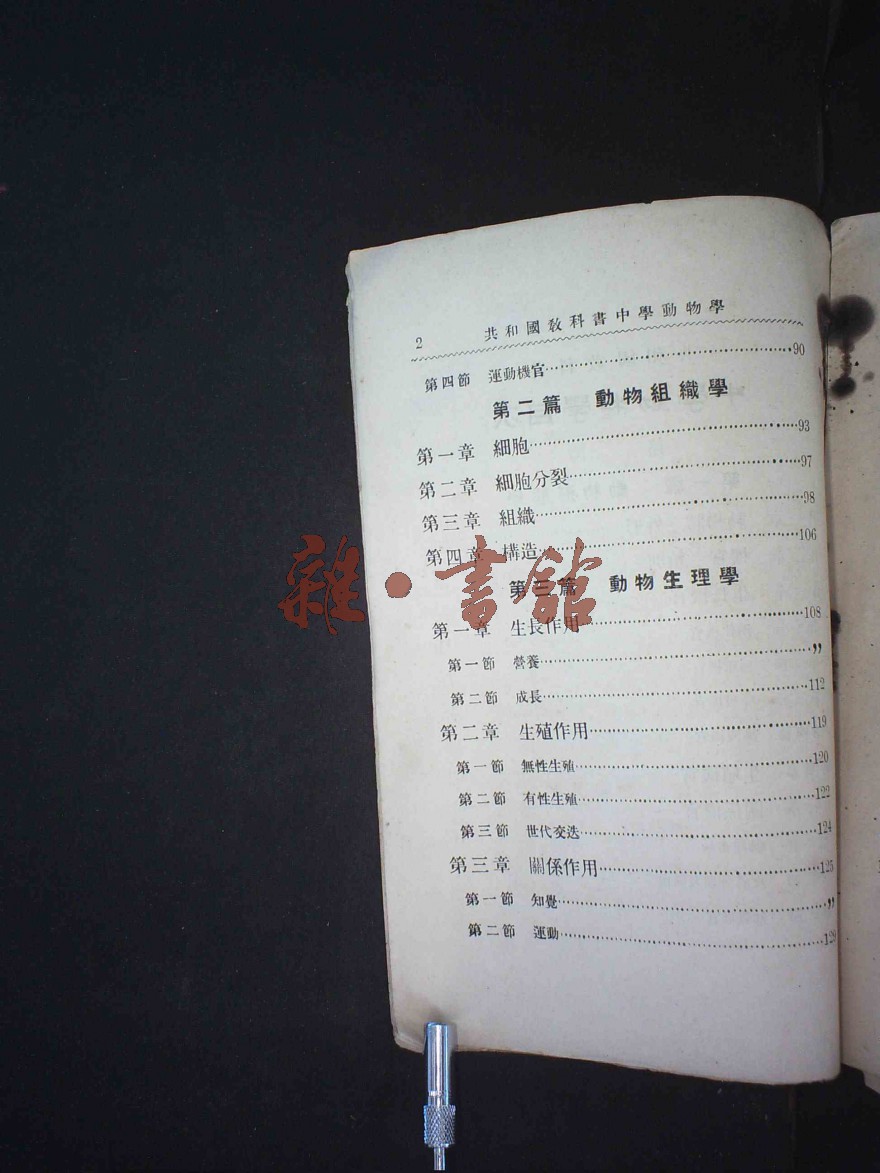 2 共和國敎科書中學動物學
第四節 運動機官……90
第二篇 動物組織學
第一章 細胞……93
第二章 細胞分裂……97
第三章 組織……98
第四章 構造……106
第三篇 動物生理學
第一章 生長作用……108
第一節 營養……"
第二節 成長……112
第二章 生殖作用……119
第一節 無性生殖……120
第二節 有性生殖……122
第三節 世代交迭……124
第三章 關係作用……125
第一節 知覺……"
第二節 運動……129
雜·書館